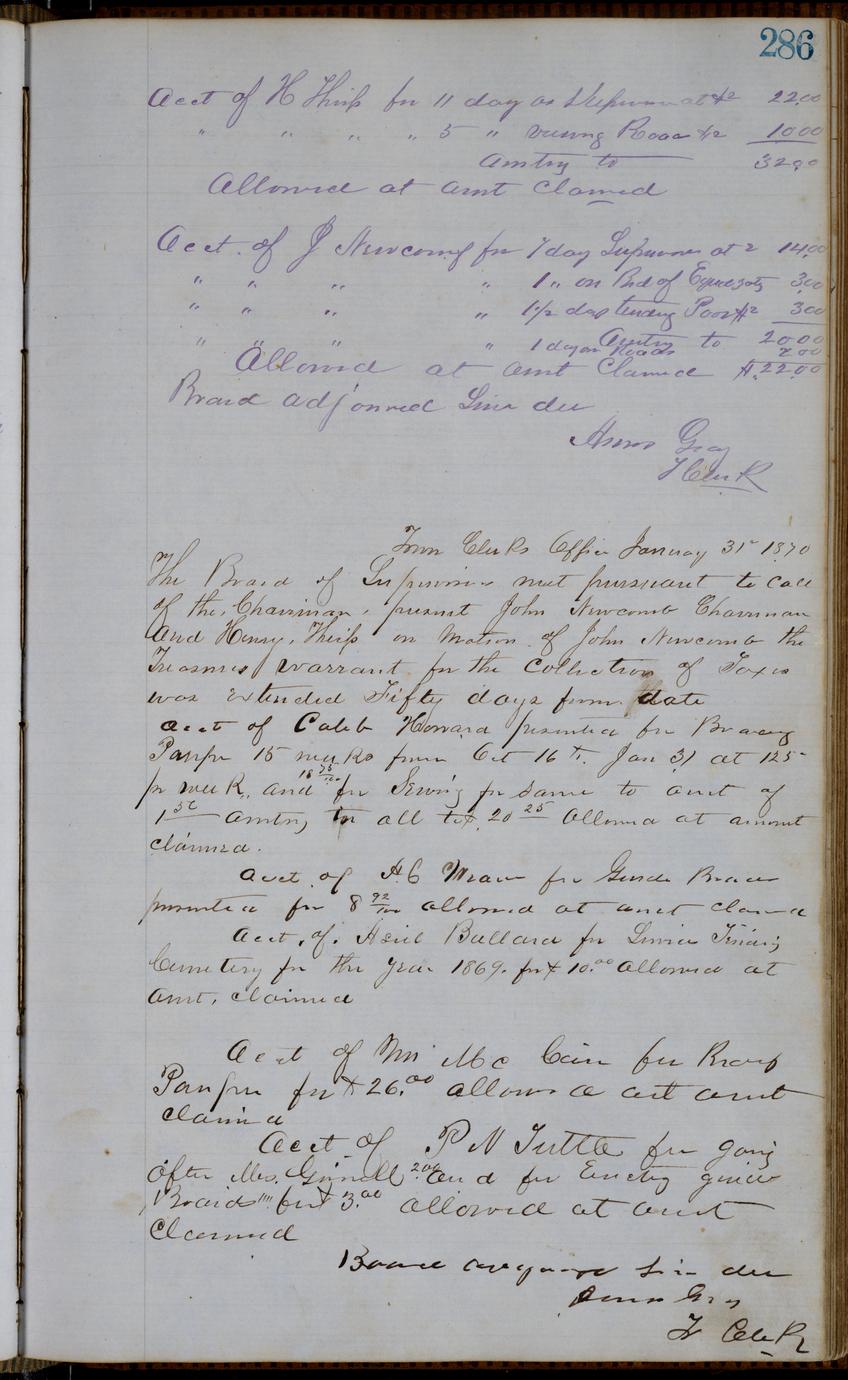 286
Acct of H Thiess for 11 day as Supervisor at $2 22.00
" " " " 5 " viewing Road $2 10.00
Amtng to 32.00
Allowed at amt Clamed
Acct. of J Newcomb for 7 day Supervisor at 2 14.00
" " " " 1 " on Brd of Equ 3.00
" " " " 1 1/2 das tending Poor $2 3.00
Amtng to 20.00
" " " " 1 day on Roads 2.00
Allowed at amt Clamed $22.00
Board adjourned Sine die
Amos Gray
T Clerk
Town Clerks Office January 31st 1870
The Board of Supervisors met pursuant to call
of the Chairman, present John Newcomb Chairman
and Henry Thiess on Motion of John Newcomb the
Treasures warrant for the Collection of Taxes
was extended Fifty days from date
acct of Caleb Howard presented for Boarding
Pauper 15 weeks from Oct 16th. Jan 31 at 125-
pr week, and 18 75/100 for Sewing for same to amt of
1 50 Amtng in all to $ 20 25 allowed at amount
claimed.
acct. of H C for Guide Boards
presented for 8 92/100 allowed at amt claimed
acct. of. Ballard for
Cemetery for the year 1869. for $ 10.00 allowed at
amt. claimed
Acct of Mr Mc Cain for
Pauper for $ 26.00 allowed at amt
claimed
Acct of P N Tuttle for going
after Mrs. Grinnell 2.00 and for Erecting guide
Boards "" for $ 3.00 allowed at amt
Claimed
Board Sine die
Amos Gray
T Clerk